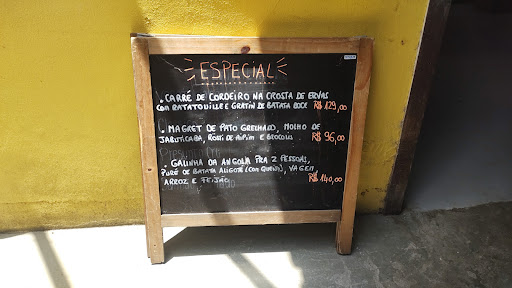 ESPECIAL
. CARRÉ DE CORDEIRO NA CROSTA DE ERVAS
COM RATATOUILLE E GRATIN DE BATATA DOCE R$ 129,00
. MAGRET DE PATO GRELHADO, MOLHO DE
JABUTICABA, ROSTI DE AIPIM E BROCOLIS R$ 96,00
. GALINHA DA ANGOLA PRA 2 PESSOAS,
PURÊ DE BATATA ALIGOT (COM QUEIJO), VAGEM
ARROZ E FEIJÃO R$ 140,00